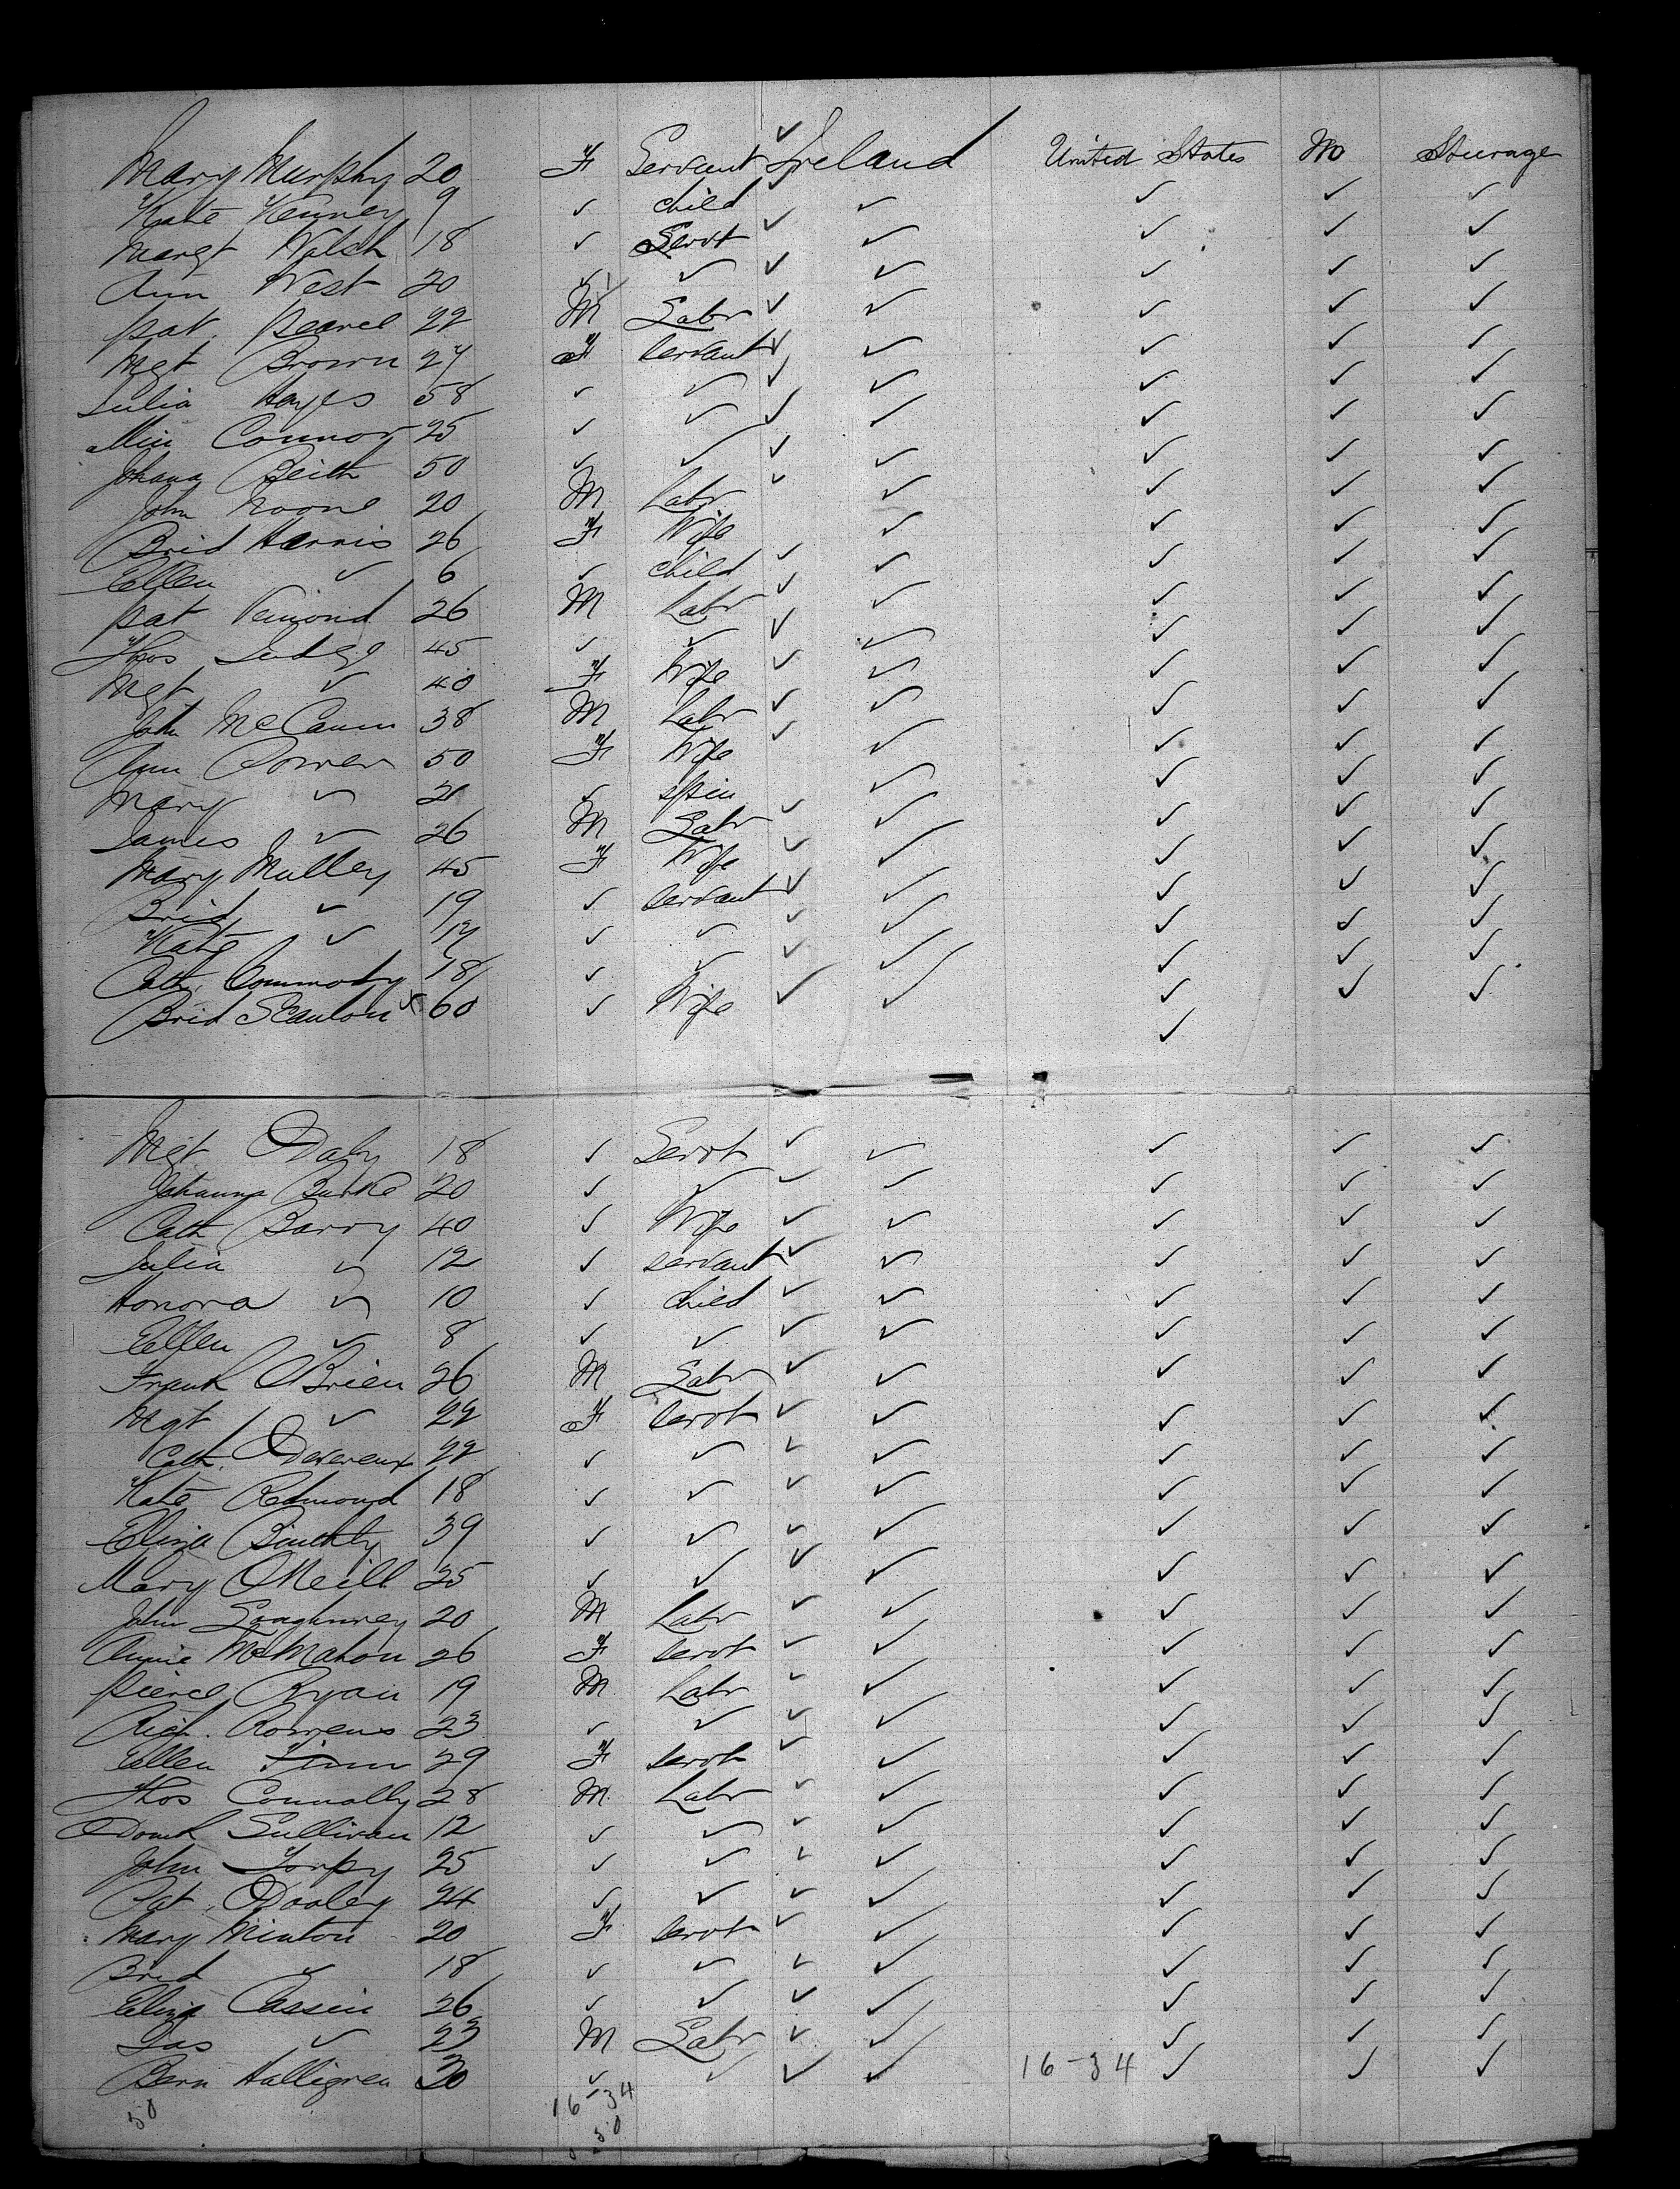 Mary Murphy 20 F Servant ✓ Ireland United States M Steerage
Kate Kenney 9 ✓ child ✓ ✓ ✓ ✓ ✓
Margt Walsh 18 ✓ Servt ✓ ✓ ✓ ✓ ✓
Ann West 20 ✓ ✓ ✓ ✓ ✓ ✓ ✓
Pat. Pearce 22 M Labr ✓ ✓ ✓ ✓ ✓
Mgt Brown 27 F Servant ✓ ✓ ✓ ✓ ✓
Julia Hayes 58 ✓ ✓ ✓ ✓ ✓ ✓ ✓
Connor 25 ✓ ✓ ✓ ✓ ✓ ✓ ✓
Johana 50 ✓ ✓ ✓ ✓ ✓ ✓ ✓
John Noone 20 M Labr ✓ ✓ ✓ ✓ ✓
Brid Harris 26 F Wife ✓ ✓ ✓ ✓
Ellen ✓ 6 ✓ child ✓ ✓ ✓ ✓ ✓
Pat 26 M Labr ✓ ✓ ✓ ✓ ✓
Thos Judge 45 ✓ ✓ ✓ ✓ ✓ ✓ ✓
Mgt ✓ 40 F Wife ✓ ✓ ✓ ✓ ✓
John McCann 38 M Labr ✓ ✓ ✓ ✓ ✓
Ann Power 50 F Wife ✓ ✓ ✓ ✓ ✓
Mary ✓ ✓ spin ✓ ✓ ✓ ✓
James ✓ 26 M Labr ✓ ✓ ✓ ✓ ✓
Mary Mulley 45 F Wife ✓ ✓ ✓ ✓ ✓
Brid ✓ 19 ✓ Servant ✓ ✓ ✓ ✓ ✓
Kate ✓ 17 ✓ ✓ ✓ ✓ ✓ ✓ ✓
Cath. Commody 18 ✓ ✓ ✓ ✓ ✓ ✓ ✓
Brid Scanlon x 60 ✓ Wife ✓ ✓ ✓ ✓ ✓
Mgt Daly 18 ✓ Servt ✓ ✓ ✓ ✓ ✓
Johanna Burke 20 ✓ ✓ ✓ ✓ ✓ ✓ ✓
Cath Barry 40 ✓ Wife ✓ ✓ ✓ ✓ ✓
Julia ✓ 12 ✓ servant ✓ ✓ ✓ ✓ ✓
Honora ✓ 10 ✓ child ✓ ✓ ✓ ✓ ✓
Ellen ✓ 8 ✓ ✓ ✓ ✓ ✓ ✓ ✓
Frank OBrien 26 M Labr ✓ ✓ ✓ ✓ ✓
Mgt ✓ 22 F Servt ✓ ✓ ✓ ✓ ✓
Cath. Devereux 22 ✓ ✓ ✓ ✓ ✓ ✓ ✓
Kate Redmond 18 ✓ ✓ ✓ ✓ ✓ ✓ ✓
Eliza 39 ✓ ✓ ✓ ✓ ✓ ✓ ✓
Mary ONeill 25 ✓ ✓ ✓ ✓ ✓ ✓ ✓
John Loughnrey 20 M Labr ✓ ✓ ✓ ✓ ✓
Annie McMahon 26 F Servt ✓ ✓ ✓ ✓ ✓
Pierce Ryan 19 M Labr ✓ ✓ ✓ ✓ ✓
Rich. 23 ✓ ✓ ✓ ✓ ✓ ✓ ✓
Ellen Finn 29 F Servt ✓ ✓ ✓ ✓ ✓
Thos Connolly 28 M Labr ✓ ✓ ✓ ✓ ✓
Sullivan 12 ✓ ✓ ✓ ✓ ✓ ✓ ✓
John Torpy 25 ✓ ✓ ✓ ✓ ✓ ✓ ✓
Pat. Dooley 24 ✓ ✓ ✓ ✓ ✓ ✓ ✓
Mary Minton 20 F Servt ✓ ✓ ✓ ✓ ✓
Brid ✓ 18 ✓ ✓ ✓ ✓ ✓ ✓ ✓
Eliza Cassin 26 ✓ ✓ ✓ ✓ ✓ ✓ ✓
Jas ✓ 23 M Labr ✓ ✓ ✓ ✓ ✓
Bern Halligren 30 ✓ ✓ ✓ ✓ 16-34 ✓ ✓ ✓
50 16-34
50